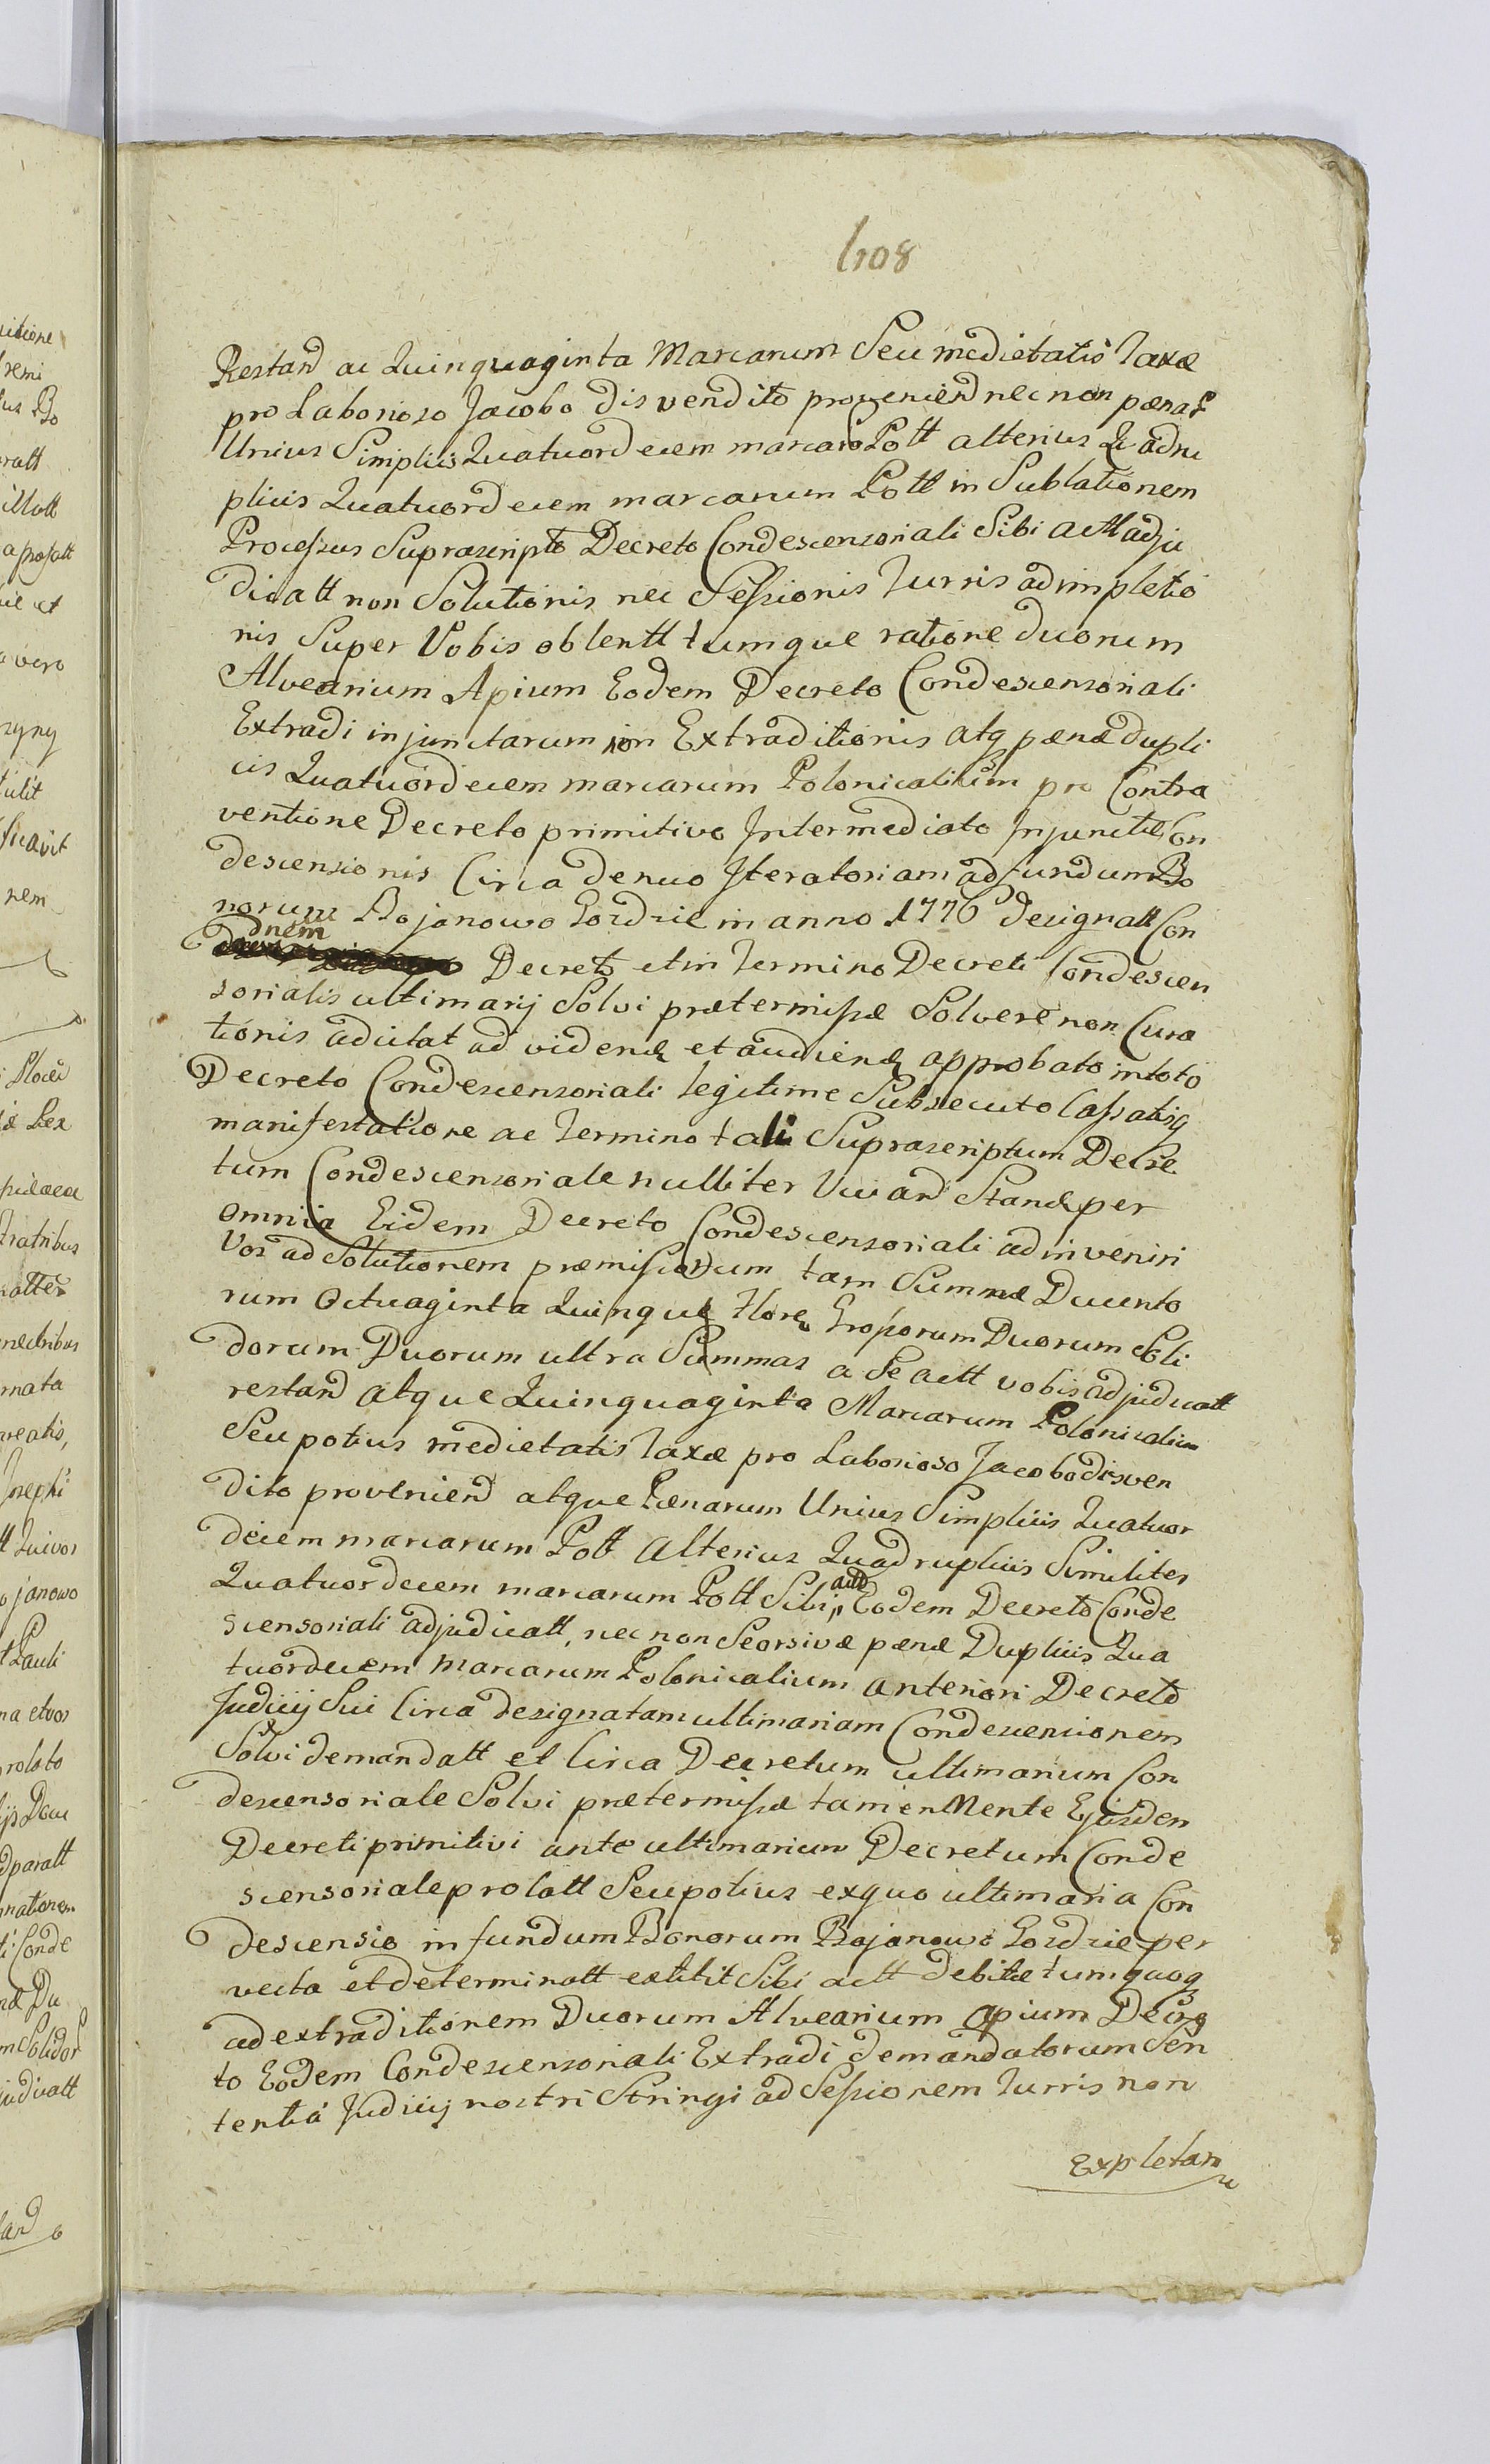 608
Restand ac Quinquaginta Marcarum Seu medietatis Taxæ
pro Laborioso Jacobo disvendito proveniend nec non pænar
Unius Simpliis Quatuordecem marcar Poll alterius Quadru
pliis Quatuordecem marcarum Poll in Sublationem
Processus Suprascripto Decreto Condescensoriali Sibi actt adju
dicatt non Solutionis nec Sessionis Turris adimpletio
nis Super Vobis oblentt tumque ratione duorum
Alvearium Apium Eodem Decreto Condescensoriali
Extradi injunctarum non Extraditionis atq pænæ dupli
cis Quatuordecem marcarum Polonicalium pro Contra
ventione Decreto primitivo Intermediato Injunctæ Con
descensionis Circa denuo Iteratoriam ad fundum Bo
norum Bojanowo Gozdzie in anno 1776 designatt Con
dnem
Decreto et in Termino Decreti Condescen
sorialis ultimarij Solvi prætermissæ Solvere non Cura
tionis adcitat ad videnđ et audienđ approbato intoto
Decreto Condescensoriali legitime Subsecuto Cassatisq
manifestatione ac Termino tali Suprascriptum Decre
tum Condescensoriale nulliter Vivand Stanđ per
omnia Eidem Decreto Condescensoriali adinveniri
Vos ad Solutionem præmissorum tam Summæ Ducento
rum Octuaginta Quinque Flor Grossorum Duorum Soli
dorum Duorum ultra Summas a Se actt vobis adjudicatt
restand atque Quinquaginta Marcarum Polonicalium
Seu potius medietatis Taxæ pro Laborioso Jacobo disven
dito proveniend atque Pænarum Unius Simpliis Quatuor
decem marcarum Poll Alterius Quadrupliis Similiter
Quatuordecem marcarum Poll Sibi actt Eodem Decreto Conde
scensoriali adjudicatt, nec non Seorsivæ pænæ Dupliis Qua
tuordecem Marcarum Polonicalium anteriori Decreto
Judicij Sui Circa designatam ultimariam Condescencionem
Solvi demandatt et Circa Decretum ultimarium Con
descensoriale Solvi prætermissæ tamen Mente Ejusdem
Decreti primitivi ante ultimarium Decretum Conde
scensoriale prolatt Seu potius ex quo ultimaria Con
descensio in fundum Bonorum Bojanowo Gozdzie per
vecta et determinatt extitit Sibi actt debitæ tum quoq
ad extraditionem Duorum Alvearium apium Decre
to Eodem Condescensoriali Extradi demandatorum Sen
tentiâ Judicij nostri Stringi ad Sessionem Turris non
Expletam